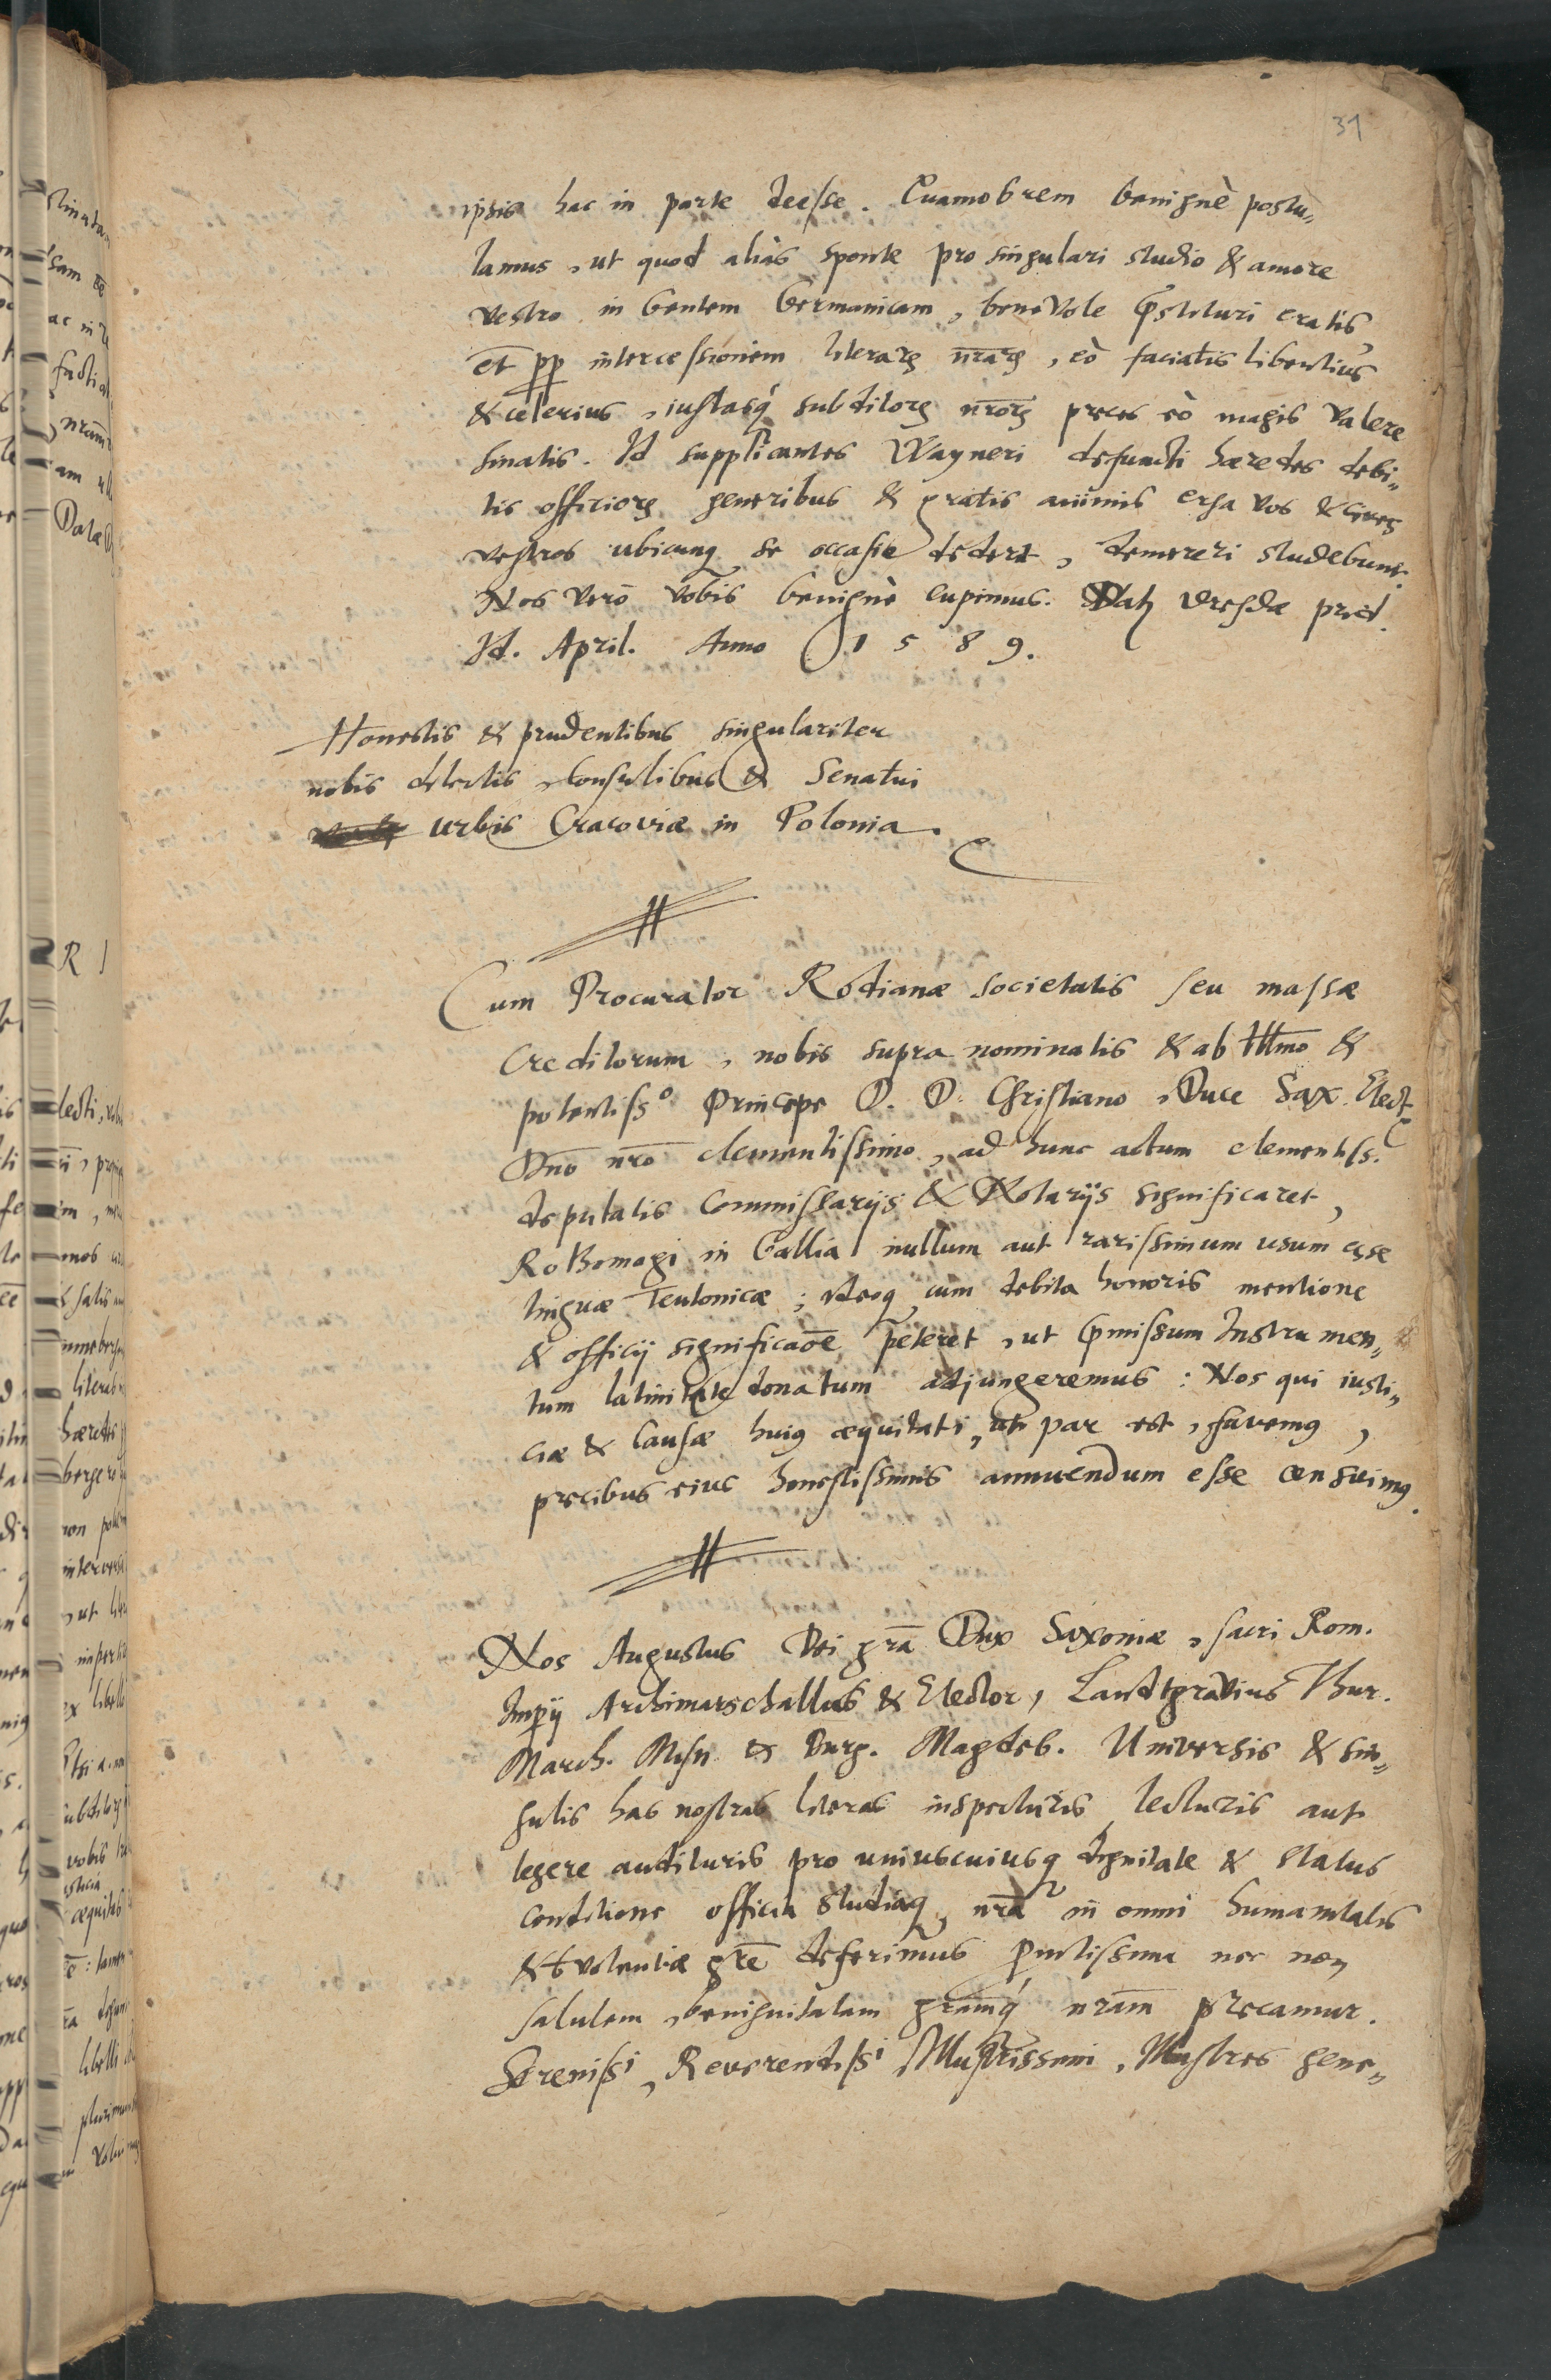 31
ipsis hac in parte deesse. Quamobrem benignè postu„
lamus, ut quod aliàs sponte pro singulari studio & amore
vestro in Gentem Germanicam, benevole p̃stituri eratis,
et pp intercessionem literarꝫ nr̄arꝫ, eò faciatis libentius
& celerius, iustasq́ subditorꝫ nr̄orꝫ preces eò magis valere
sinatis. Id supplicantes Wayneri defuncti hæredes debi„
tis officiorꝫ generibus & gratis animis erga vos & cives
vestros ubicunq se occasio dedert, demereri studebunt.
Nos verò vobis benignè cupimus. Datꝫ Dresdæ prid.
Id. April. Anno 1589.
Honestis & prudentibus singulariter
nobis dilectis, Consulibus & Senatui
urbis Cracoviæ in Polonia.
Cum Procurator Rodianæ societatis seu massæ
Creditorum, nobis supra nominatis & ab Illmo &
potentissº Principe D. D. Christiano, Duce Sax. Elect.
Dn̄o nr̄o clementissimo, ad hunc actum clementiss.
deputatis Commissarijs & Notarijs significaret,
Rothomagi in Gallia nullum aut rarissimum usum esse
linguæ Teutonicæ; ideoq cum debita honoris mentione
& officij significaōe peteret, ut p̃missum Instrumen„
tum latinitate donatum adjungeremus: Nos qui iusti„
ciæ & Causæ huiꝰ æquitati, uti par est, favemꝰ,
precibus eius honestissimis annuendum esse censuimꝰ.
Nos Augustus Dei gr̄a Dux Saxoniæ, sacri Rom.
Imp̃ij Archimarschallus & Elector, Landtgravius Thur.
March. Misn. & Burg. Magdeb. Universis & sin„
gulis has nostras literas inspecturis, lecturis aut
legere audituris pro uniuscuiusq dignitate & status
conditione officia studiaq nr̄a in omni humanitatis
& bvolentiæ gr̄e deferimus p̃mtissima nec non
salutem, benignitatem gr̄amq́ nr̄am precamur.
Serenissⁱ, Reverendissⁱ Illustrissimi, Illustres gene„